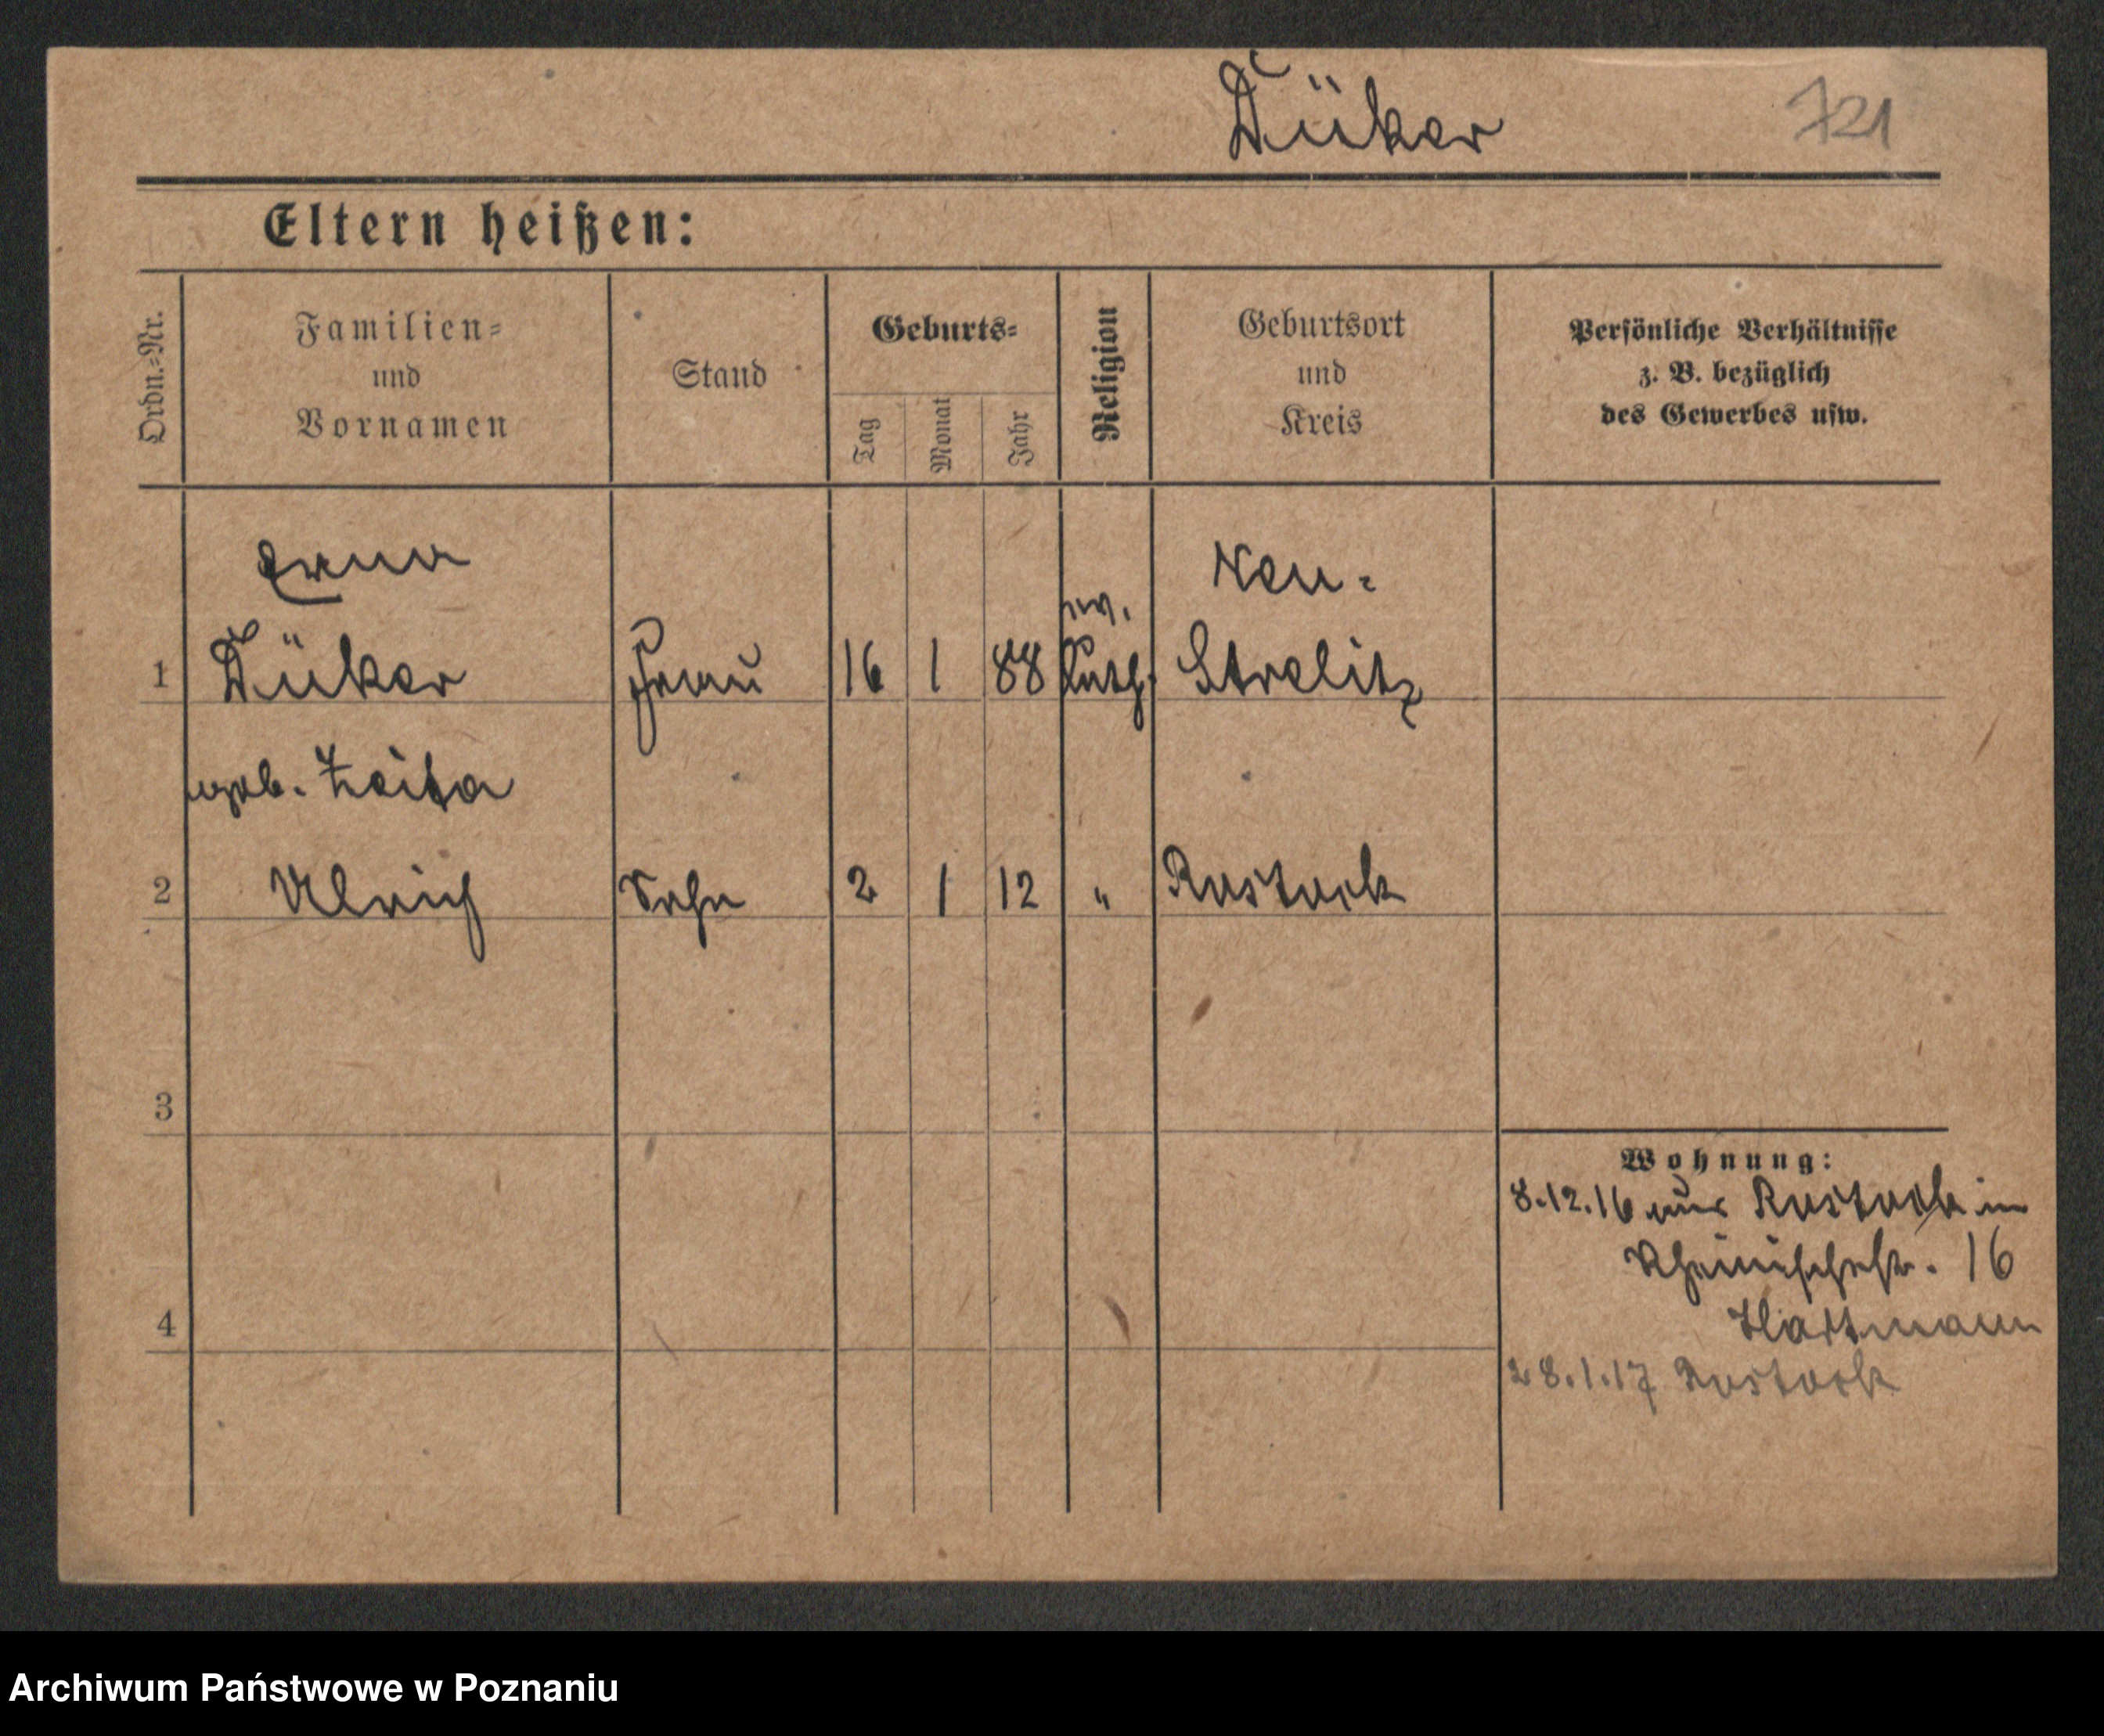 Düker 721
Eltern heißen:
Ordn.=Nr.
Familien=
und
Vornamen
Stand
Geburts=
Tag
Monat
Jahr
Religion
Geburtsort
und
Kreis
Persönliche Verhältnisse
z. B. bezüglich
des Gewerbes usw.
Erna Neu-
ev.
1 Düker Frau 16 1 88 Luth. Strelitz
geb.
2 Ulrich Sohn 2 1 12 " Rostock
3
Wohnung:
8.12.16 aus Rostock in
16
4 Hartmann
28.1.17 Rostock
Archiwum Państwowe w Poznaniu